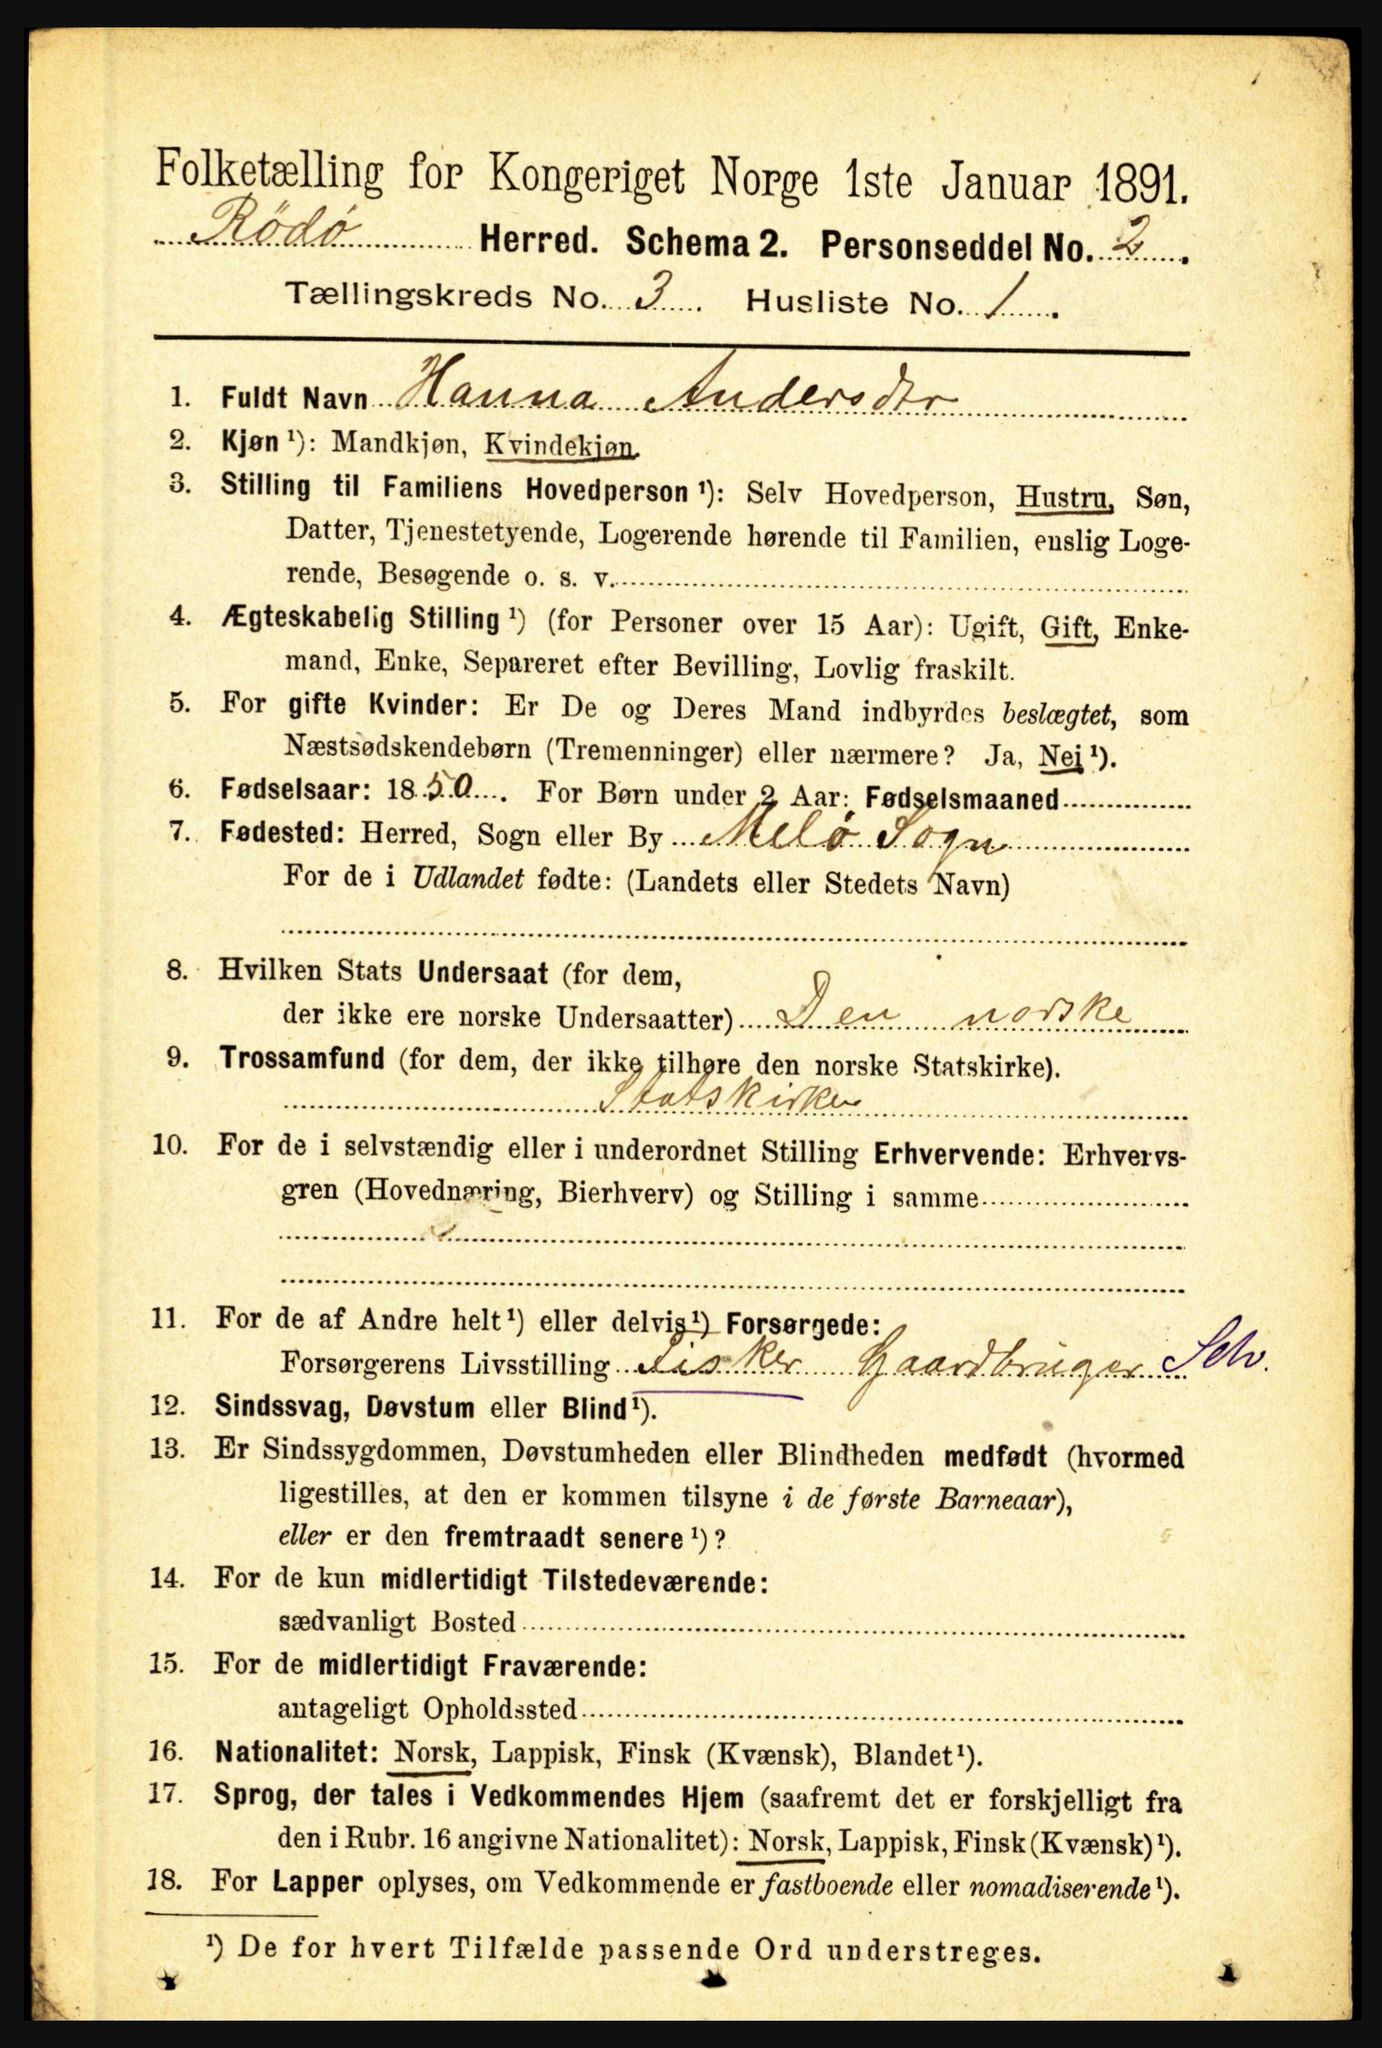 Folketælling for Kongeriget Norge 1ste Januar 1891.
Rödö Herred. Schema 2. Personseddel No. 2.
Tællingskreds No. 3. Husliste No. 1.
1. Fuldt Navn Hanna Andersdtr
2. Kjøn ¹): Mandkjøn, Kvindekjøn.
3. Stilling til Familiens Hovedperson ¹): Selv Hovedperson, Hustru, Søn,
Datter, Tjenestetyende, Logerende hørende til Familien, enslig Loge-
rende, Besøgende o. s. v.
4. Ægteskabelig Stilling ¹) (for Personer over 15 Aar): Ugift, Gift, Enke-
mand, Enke, Separeret efter Bevilling, Lovlig fraskilt.
5. For gifte Kvinder: Er De og Deres Mand indbyrdes beslægtet, som
Næstsødskendebørn (Tremenninger) eller nærmere? Ja, Nei ¹).
6. Fødselsaar: 1850. For Børn under 2 Aar: Fødselsmaaned
7. Fødested: Herred, Sogn eller By Melö Sogn
For de i Udlandet fødte: (Landets eller Stedets Navn)
8. Hvilken Stats Undersaat (for dem,
der ikke ere norske Undersaatter) Den norske
9. Trossamfund (for dem, der ikke tilhøre den norske Statskirke).
Statskirken
10. For de i selvstændig eller i underordnet Stilling Erhvervende: Erhvervs-
gren (Hovednæring, Bierhverv) og Stilling i samme
11. For de af Andre helt ¹) eller delvis ¹) Forsørgede:
Forsørgerens Livsstilling Fisker Gaardbruger Selv.
12. Sindssvag, Døvstum eller Blind ¹).
13. Er Sindssygdommen, Døvstumheden eller Blindheden medfødt (hvormed
ligestilles, at den er kommen tilsyne i de første Barneaar),
eller er den fremtraadt senere ¹)?
14. For de kun midlertidigt Tilstedeværende:
sædvanligt Bosted
15. For de midlertidigt Fraværende:
antageligt Opholdssted
16. Nationalitet: Norsk, Lappisk, Finsk (Kvænsk), Blandet ¹).
17. Sprog, der tales i Vedkommendes Hjem (saafremt det er forskjelligt fra
den i Rubr. 16 angivne Nationalitet): Norsk, Lappisk, Finsk (Kvænsk) ¹).
18. For Lapper oplyses, om Vedkommende er fastboende eller nomadiserende ¹).
¹) De for hvert Tilfælde passende Ord understreges.